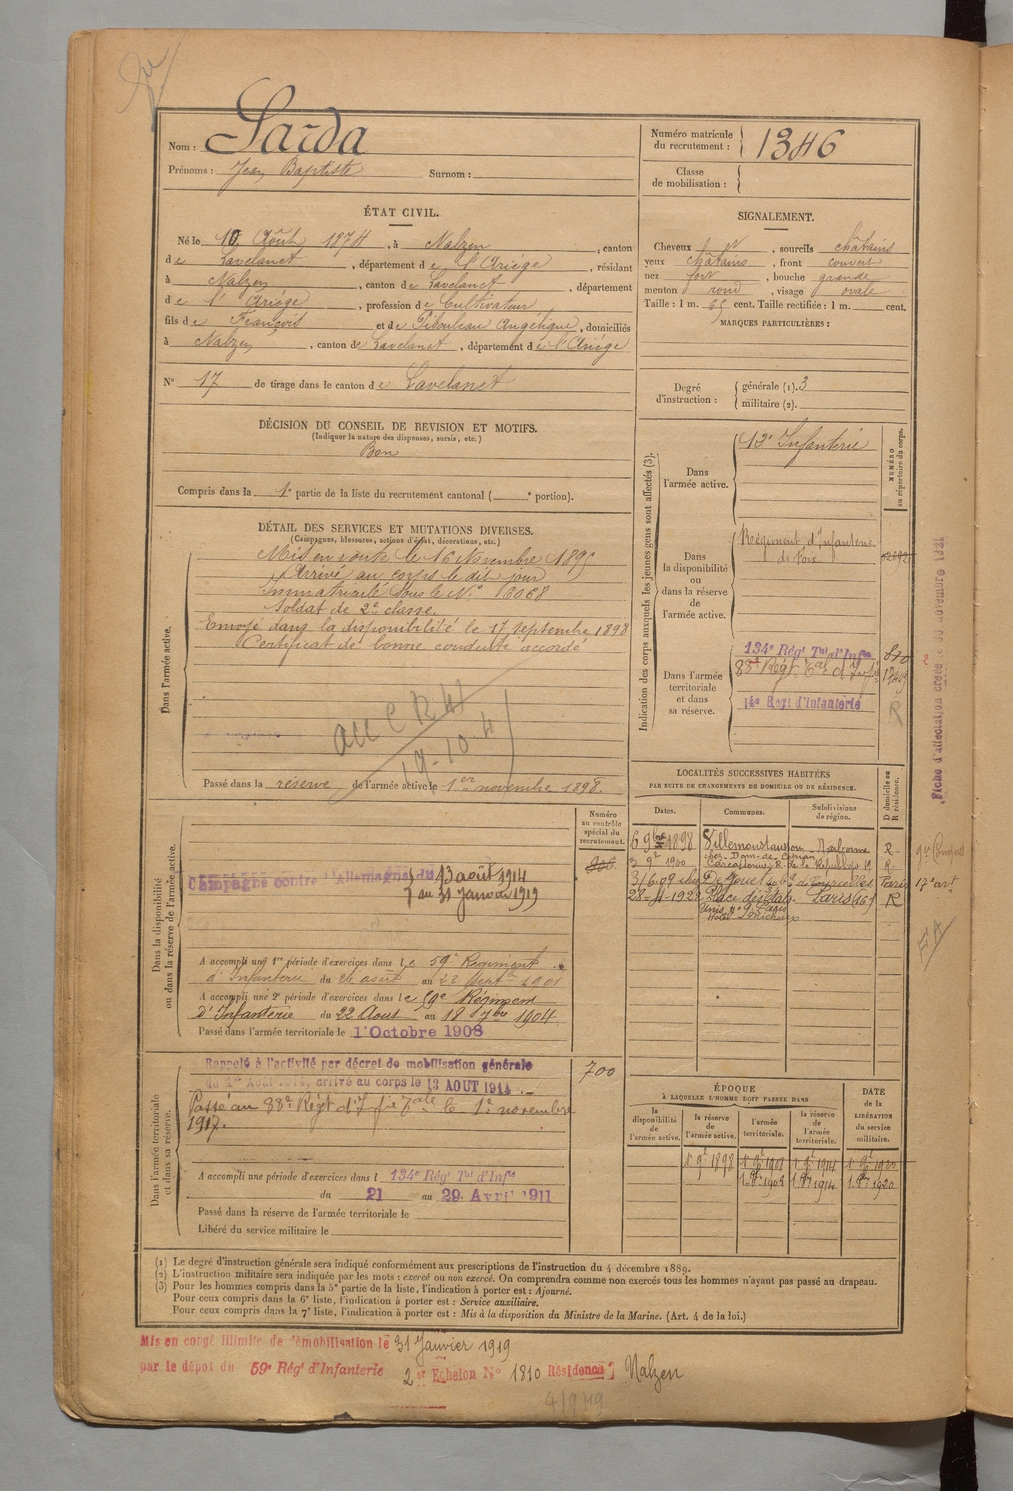 Nom : Sarda
Prénoms : Jean Baptiste Surnom :
Numéro matricule du recrutement : 1346
Classe de mobilisation :
ÉTAT CIVIL.
Né le 10 Août 1874, à Nalzen, canton
de Lavelanet, département de l'Ariège, résidant
à Nalzen, canton de Lavelanet, département
de l'Ariège, profession de Cultivateur
fils de François et de Pibouleau Angélique, domiciliés
à Nalzen, canton de Lavelanet, département de l'Ariège
N° 17 de tirage dans le canton de Lavelanet
SIGNALEMENT.
Cheveux , sourcils châtains
yeux châtains, front couvert
nez fort, bouche grande
menton rond, visage ovale
Taille : 1 m. 65 cent. Taille rectifiée : 1 m. cent.
MARQUES PARTICULIÈRES :
Degré d'instruction : générale (1). 3
militaire (2).
DÉCISION DU CONSEIL DE REVISION ET MOTIFS.
(Indiquer la nature des dispenses, sursis, etc.)
Bon
Compris dans la 1e partie de la liste du recrutement cantonal ( e portion).
DÉTAIL DES SERVICES ET MUTATIONS DIVERSES.
(Campagnes, blessures, actions d'éclat, décorations, etc.)
Dans l'armée active.
Mis en route le 16 Novembre 1895
Arrivé au corps le dit jour
Immatriculé sous le N°
Soldat de 2e classe.
Envoyé dans la disponibilité le 17 Septembre 1898
Certificat de bonne conduite accordé
au C R 41
19-10-41
Passé dans la réserve de l'armée active le 1er novembre 1898.
Indication des corps auxquels les jeunes gens sont affectés (3).
NUMÉRO au répertoire du corps.
Dans l'armée active.
Infanterie
Dans la disponibilité ou dans la réserve de l'armée active.
Régiment d'Infanterie
de Foix
Dans l'armée territoriale et dans sa réserve.
134e Régt Tal d'Infie
88e Régt Tal d'Infie
14e Regt d'Infanterie
R
LOCALITÉS SUCCESSIVES HABITÉES
PAR SUITE DE CHANGEMENTS DE DOMICILE OU DE RÉSIDENCE.
Dates. Communes. Subdivisions de région. D domicile ou R résidence.
6 9bre 1898 Villemoustaussou Narbonne R.
3 9e 1900 Carcassonne, R. de la République 19 R.
Paris
28-4-1922 Place des Etats Paris R
Unis n° 9 Paris
Dans la disponibilité ou dans la réserve de l'armée active.
Numéro au contrôle spécial du recrutement.
Campagne contre l'Allemagne du 13 août 1914
au 31 Janvier 1919
A accompli une 1re période d'exercices dans le 59e Régiment
d'Infanterie du 26 août au 22 Septe 1901
A accompli une 2e période d'exercices dans le 59e Régiment
d'Infanterie du 22 Aout au 18 7bre 1904.
Passé dans l'armée territoriale le 1er Octobre 1908
Dans l'armée territoriale et dans sa réserve.
Rappelé à l'activité par décret de mobilisation générale
du 1er Août 1914, arrivé au corps le 13 AOUT 1914
700
Passé au 88e Régt d'Infie Tale le 1e novembre
1917.
A accompli une période d'exercices dans l 134e Régt Tal d'Infie
du 21 au 29 Avril 1911
Passé dans la réserve de l'armée territoriale le
Libéré du service militaire le
ÉPOQUE
À LAQUELLE L'HOMME DOIT PASSER DANS
la disponibilité de l'armée active. la réserve de l'armée active. l'armée territoriale. la réserve de l'armée territoriale.
DATE de la LIBÉRATION du service militaire.
1 9e 1898 1 9e 1908 1 9e 1914 1 9e 1920
1. 8bre 1908 1. 8bre 1914 1. 8bre 1920
(1) Le degré d'instruction générale sera indiqué conformément aux prescriptions de l'instruction du 4 décembre 1889.
(2) L'instruction militaire sera indiquée par les mots : exercé ou non exercé. On comprendra comme non exercés tous les hommes n'ayant pas passé au drapeau.
(3) Pour les hommes compris dans la 5e partie de la liste, l'indication à porter est : Ajourné.
Pour ceux compris dans la 6e liste, l'indication à porter est : Service auxiliaire.
Pour ceux compris dans la 7e liste, l'indication à porter est : Mis à la disposition du Ministre de la Marine. (Art. 4 de la loi.)
Mis en congé illimité de démobilisation le 31 Janvier 1919
par le dépôt du 59e Régt d'Infanterie 2 Echelon N° 1810 Résidence Nalzen